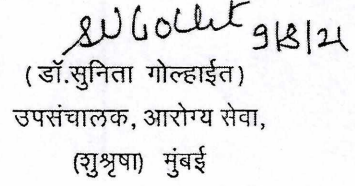 9/8/21
(डॉ.सुनिता गोल्हाईत)
उपसंचालक, आरोग्य सेवा,
(शुश्रृषा) मुंबई